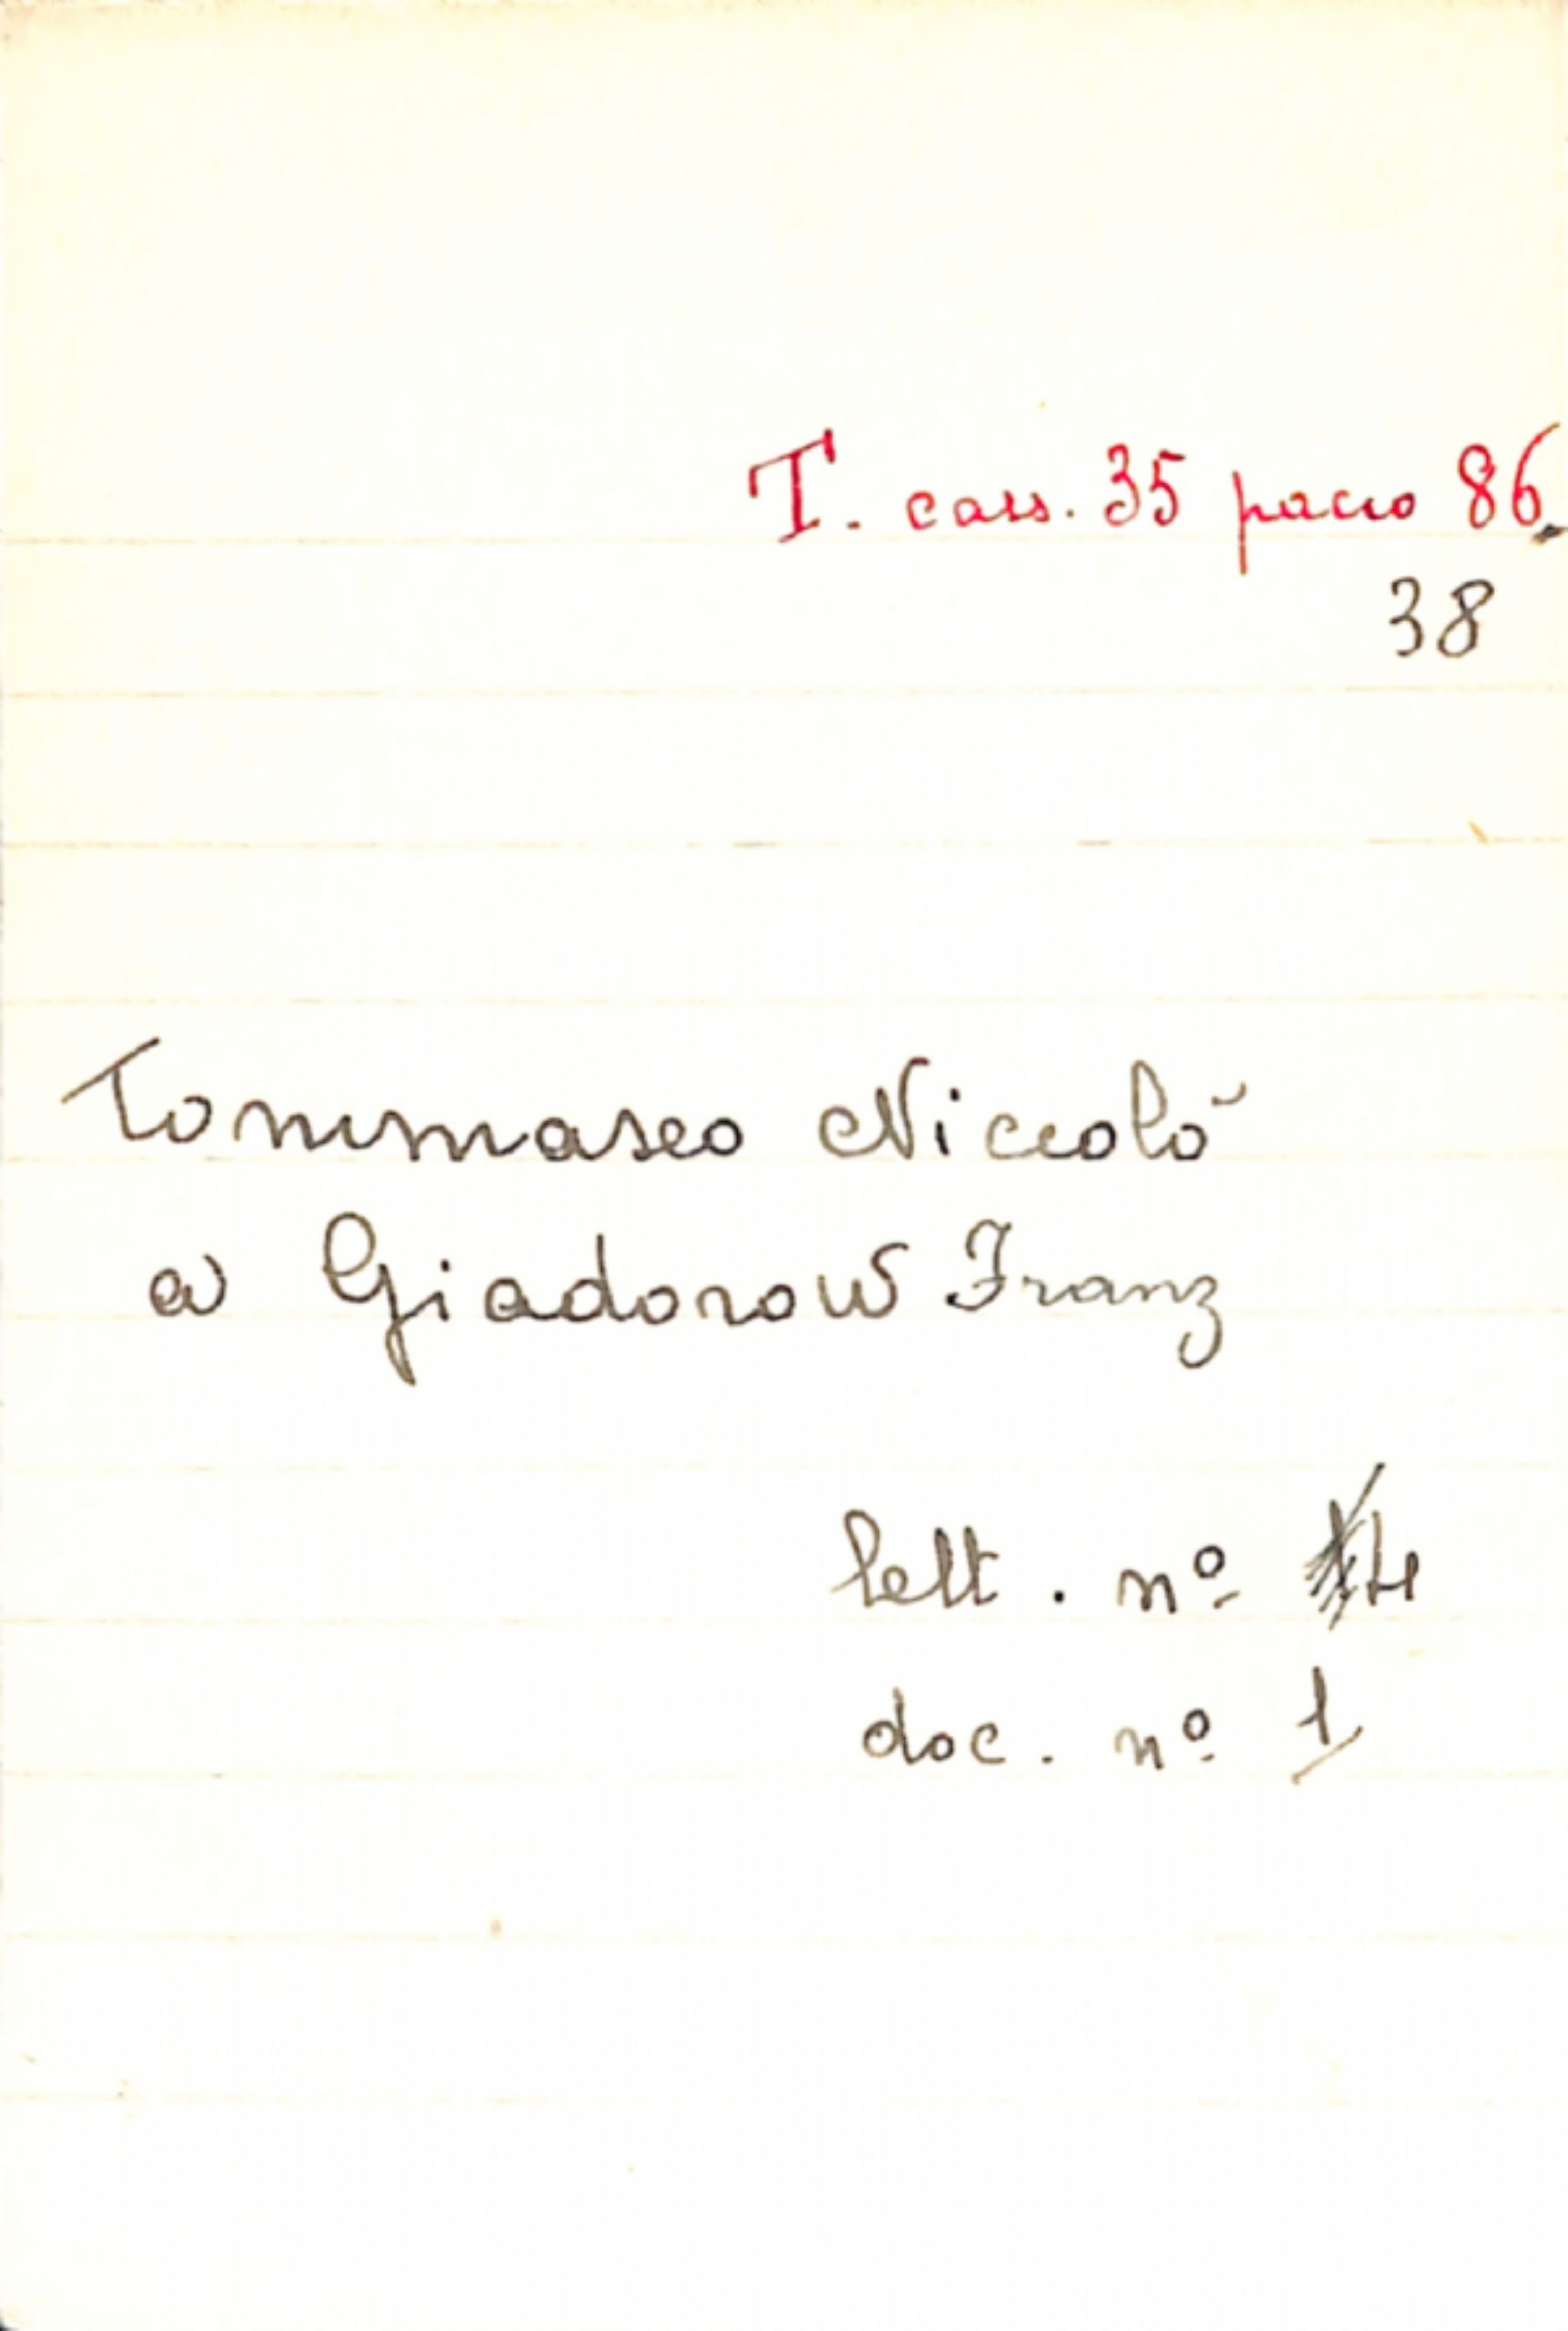 T. cass. 35 pacco 86.
38
Tommaseo Niccolò
a Giadorow Franz
lett. nº 4
doc. nº 1